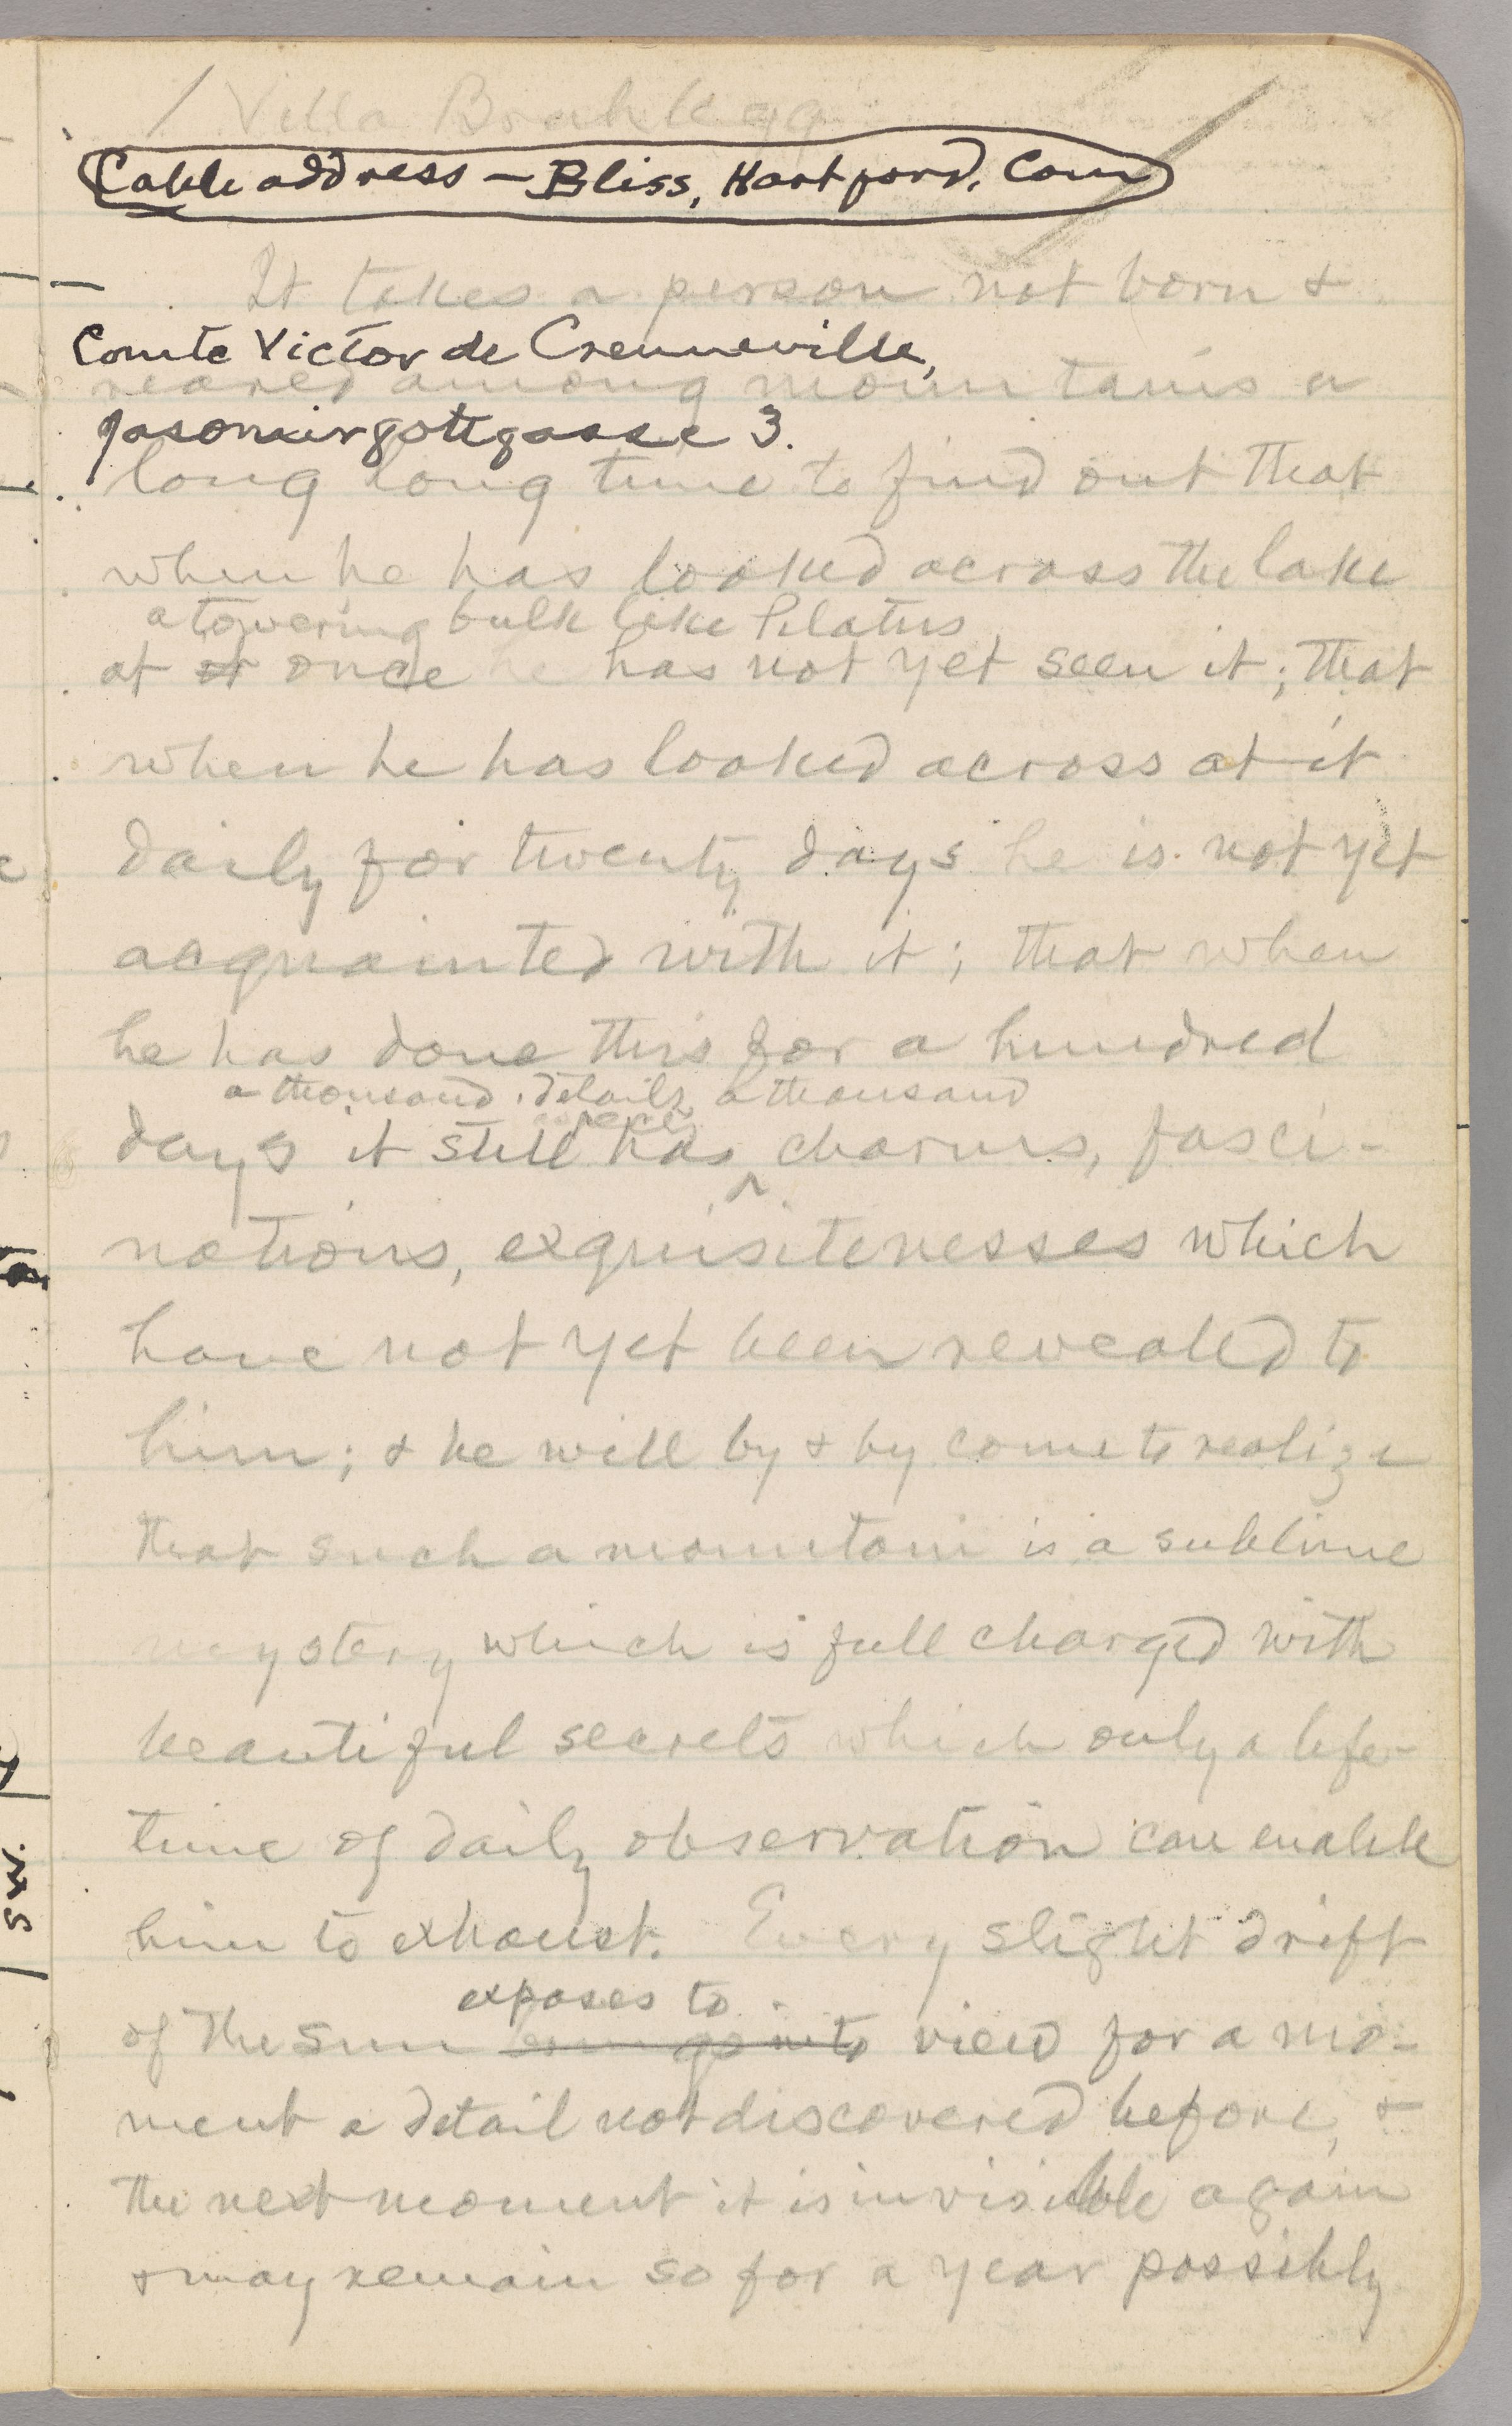 Villa
Cable address — Bliss, Hartford, Conn
It takes a person not born &
Comte Victor de Crenneville,
reared among mountains a
Jasomirgottgasse 3.
long long time to find out that
when he has looked across the lake
a towering bulk like Pilatus
at it once he has not yet seen it; that
when he has looked across at it
daily for twenty days he is not yet
acquainted with it; that when
he has done this for a hundred
a thousand details, a thousand
days it still has charms, fasci-
nations, exquisitenesses which
have not yet been revealed to
him; & he will by & by come to realize
that such a mountain is a sublime
mystery which is full charged with
beautiful secrets which only a life-
time of daily observation can enable
him to exhaust. Every slight drift
exposes to
of the sun view for a mo-
ment a detail not discovered before, &
the next moment it is invisible again
& may remain so for a year possibly